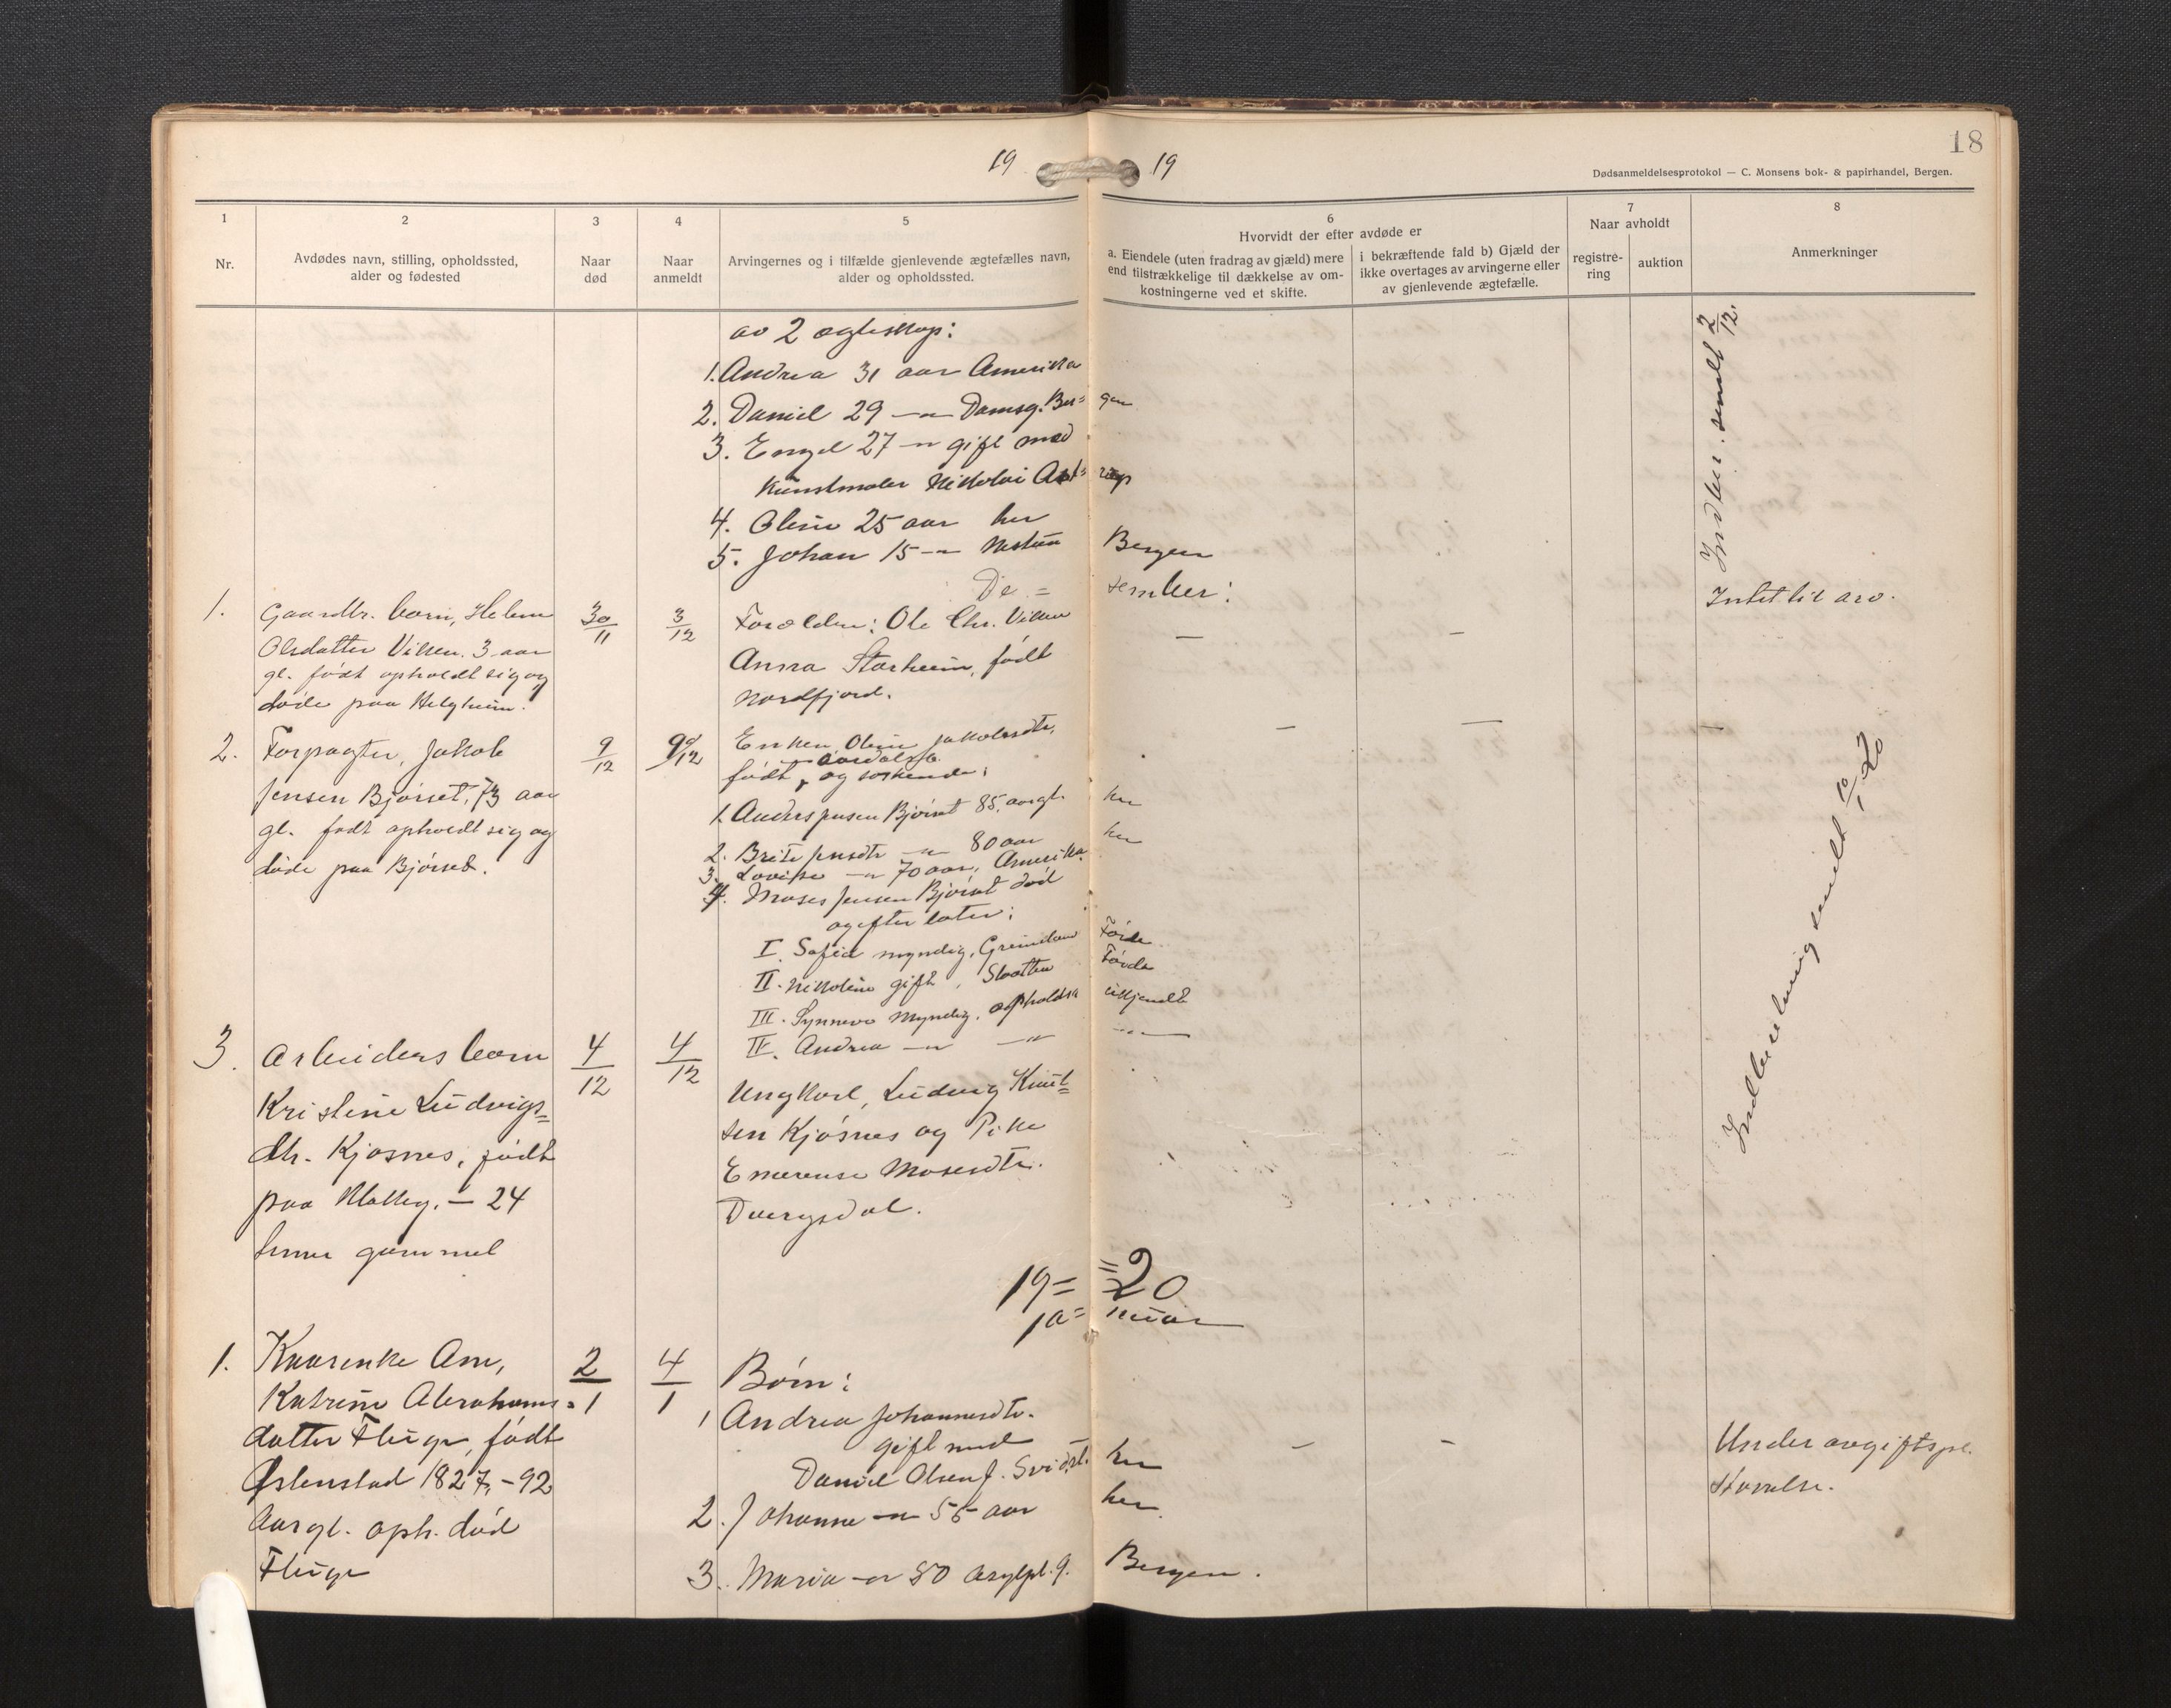 18
19
19
Dødsanmeldelsesprotokol — C. Monsens bok- & papirhandel, Bergen.
1
2
3
4
5
6
7
8
Nr.
Avdødes navn, stilling, opholdssted,
alder og fødested
Naar
død
Naar
anmeldt
Arvingernes og i tilfælde gjenlevende ægtefælles navn,
alder og opholdssted.
Hvorvidt der efter avdøde er
a. Eiendele (uten fradrag av gjæld) mere
end tilstrækkelige til dækkelse av om-
kostningerne ved et skifte.
i bekræftende fald b) Gjæld der
ikke overtages av arvingerne eller
av gjenlevende ægtefælle.
Naar avholdt
registre-
ring
auktion
Anmerkninger
av 2 ægteskap:
1. Andrea 31 aar Amerika
2. Daniel 29 —"— Damsg. Ber= gen
3. Engel 27 —"— gift med
Kunstmaler Nikolai Ast= rup
4. Oline 25 aar her
5. Johan 15 —"— Bergen
Indber. sendt 2/12
De = sember:
1. Gaardbr. barn, Helene
Olsdatter Viken. 3 aar
gl. født opholdt sig og
døde paa Helgheim.
30/11
3/12
Forældre: Ole Chr. Viken
Anna Starheim, født
Nordfjord.
— —
Intet til arv.
2. Forpagter, Jakob
Jensen Bjørset, 73 aar
gl. født opholdt sig og
døde paa Bjørset.
9/12
9/12
Enken Oline Jakobsdtr.
født og søskende:
1. Anders Jensen Bjørset 85 aar gl. her
2. Brite Jensdtr —"— 80 aar her
3. Lovise —"— 70 aar, Amerika
4. Moses Jensen Bjørset død
og efterlater:
I. Sofie myndig, Førde
II. Nikoline gift, Slaatten Førde
III. Synneve myndig, opholdss ukjendt
IV. Andrea —"— —"— —"—
— — —
Indberetning sendt 10/1 20
3. Arbeiders barn
Kristine Ludvigs=
dtr. Kjøsnes, født
paa — 24
timer gammel
4/12
4/12
Ungkarl, Ludvig Knut=
sen Kjøsnes og Pike
Emerense Mosesdtr.
Dvergsdal.
19= =20
Ja= nuar
1. Kaarenke Ane,
Katrine Abrahams=
datter Fluge, født
Østenstad 1827, - 92
Aar gl. oph. død
Fluge
2/1
4/1
Børn:
1 Andrea Johannesdtr.
gift med
Daniel Olsen J. her
2. Johanne —"— 55 aar her
3. Maria —"— 50 Bergen.
— —
Under avgiftspl.
størrelse.